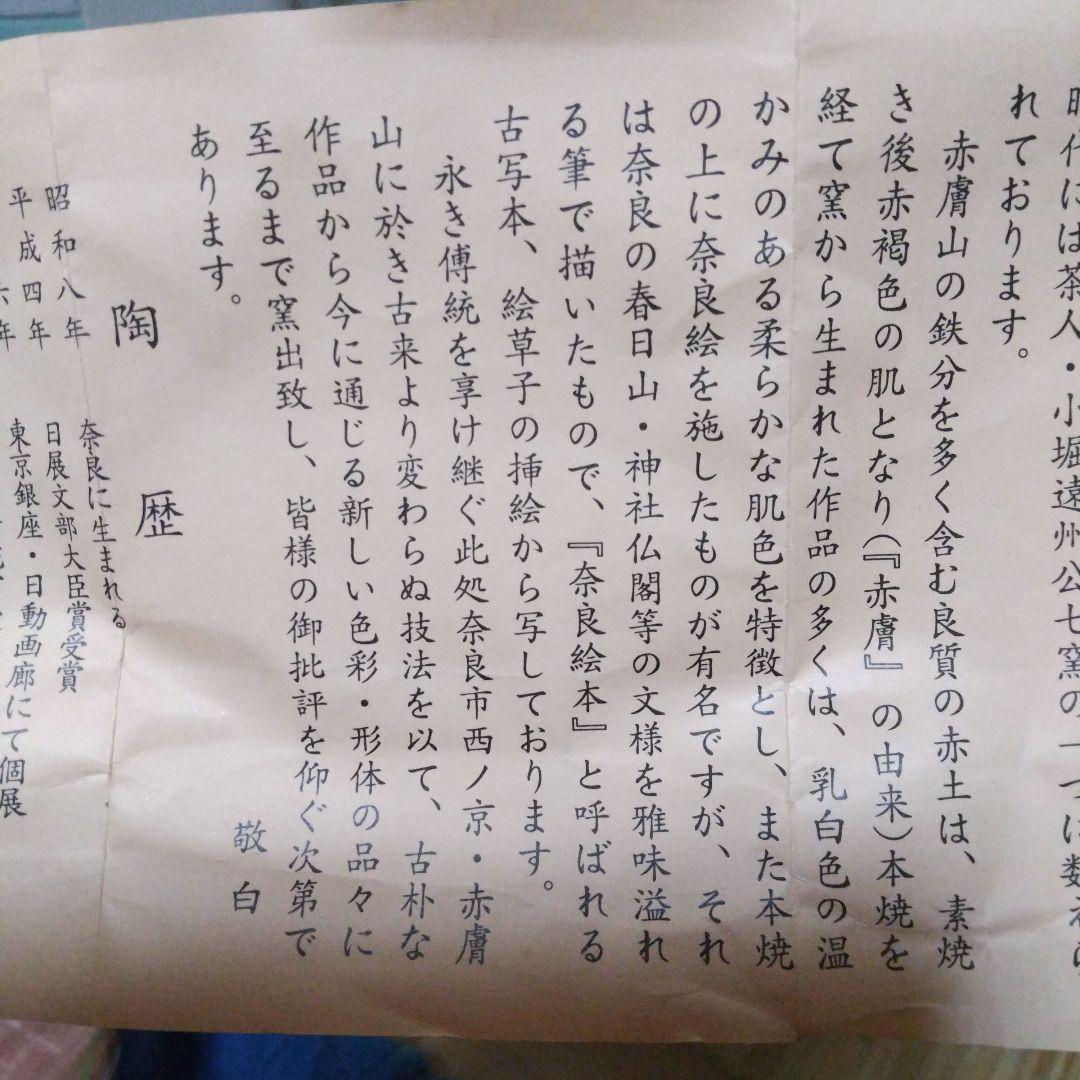 時代には茶人・小堀遠州公七窯の一つに数えら
れております。
赤膚山の鉄分を多く含む良質の赤土は、素焼
き後赤褐色の肌となり(『赤膚』の由来)本焼を
経て窯から生まれた作品の多くは、乳白色の温
かみのある柔らかな肌色を特徴とし、また本焼
の上に奈良絵を施したものが有名ですが、それ
は奈良の春日山・神社仏閣等の文様を雅味溢れ
る筆で描いたもので、『奈良絵本』と呼ばれる
古写本、絵草子の挿絵から写しております。
永き傳統を享け継ぐ此処奈良市西ノ京・赤膚
山に於き古来より変わらぬ技法を以て、古朴な
作品から今に通じる新しい色彩・形体の品々に
至るまで窯出致し、皆様の御批評を仰ぐ次第で
あります。
敬白
陶歴
昭和八年 奈良に生まれる
平成四年 日展文部大臣賞受賞
六年 東京銀座・日動画廊にて個展